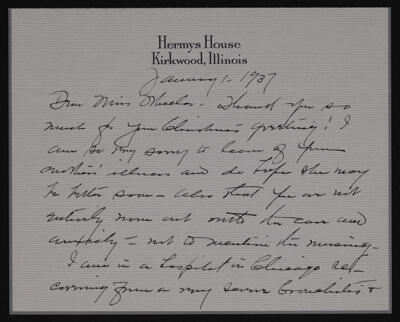 Hermys House
Kirkwood, Illinois
January 1 - 1937
Dear Miss Wheeler - Thank you so
much for your Christmas greeting! I
am so very sorry to learn of your
mother's illness and do hope she may
be better soon - also that you are not
entirely worn out with the care and
anxiety - not to mention the nursing -
I am in a hospital in Chicago re-
covering from a very severe bronchitis +